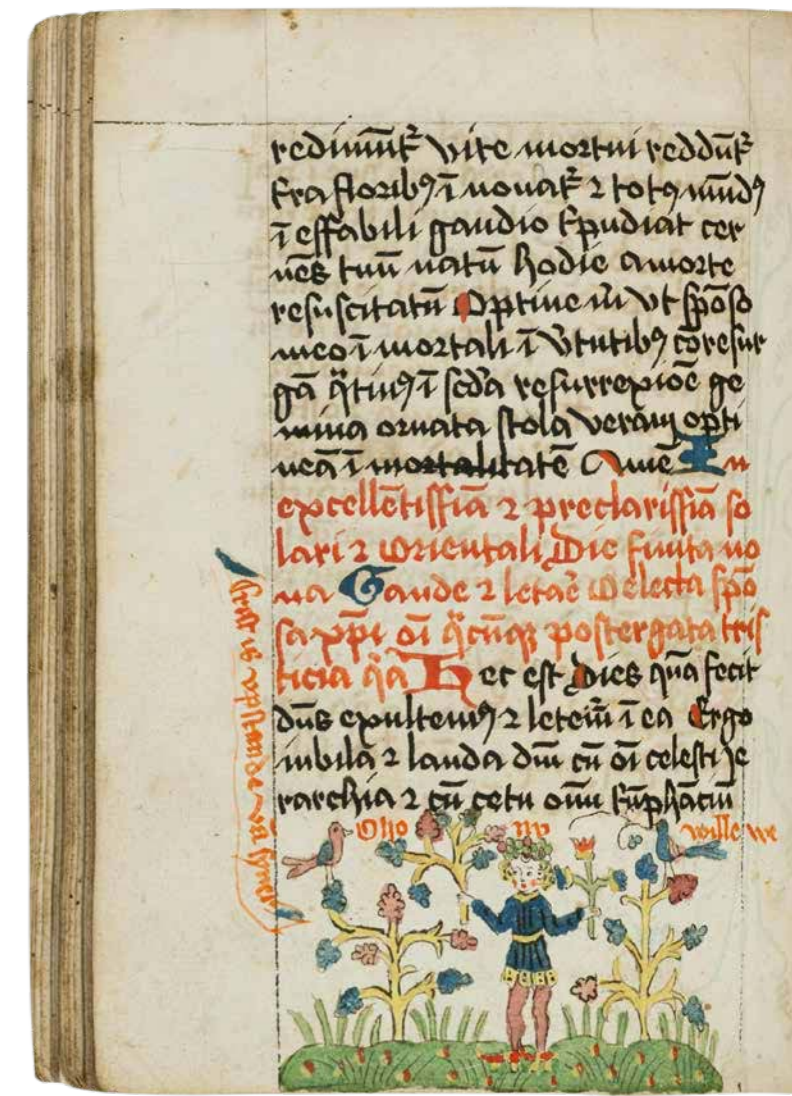 redimūt᷑ vite mortui reddūt᷑
t᷑ra floribꝰ ī nouat᷑ ⁊ totꝰ mūdꝰ
ī effabili gaudio t᷑pudiat cer
nēs tuū natū hodie a morte
resuscitatū Optine m̄ vt spōso
meo ī mortali ī v̄tutibꝰ cōresur
gā q̄tinꝰ ī scd̄a resurrexiōe ge
mina ornata stola veram opti
neā ī mortalitatē Amē In
excellētissīa ⁊ preclarissīa so
lari ⁊ orientali Die finita no
na Gaude ⁊ letar̄ O electa spō
sa xp̄i oī q̄cūqꝫ postergata tris
ticia q̄a Hec est dies quā fecit
dn̄s exultemꝰ ⁊ letem̄ ī ea Ergo
iubila ⁊ lauda dm̄ cū oī celesti Je
rarchia ⁊ cū cetu om̄ū t᷑ūphāciū
Also nu wille we